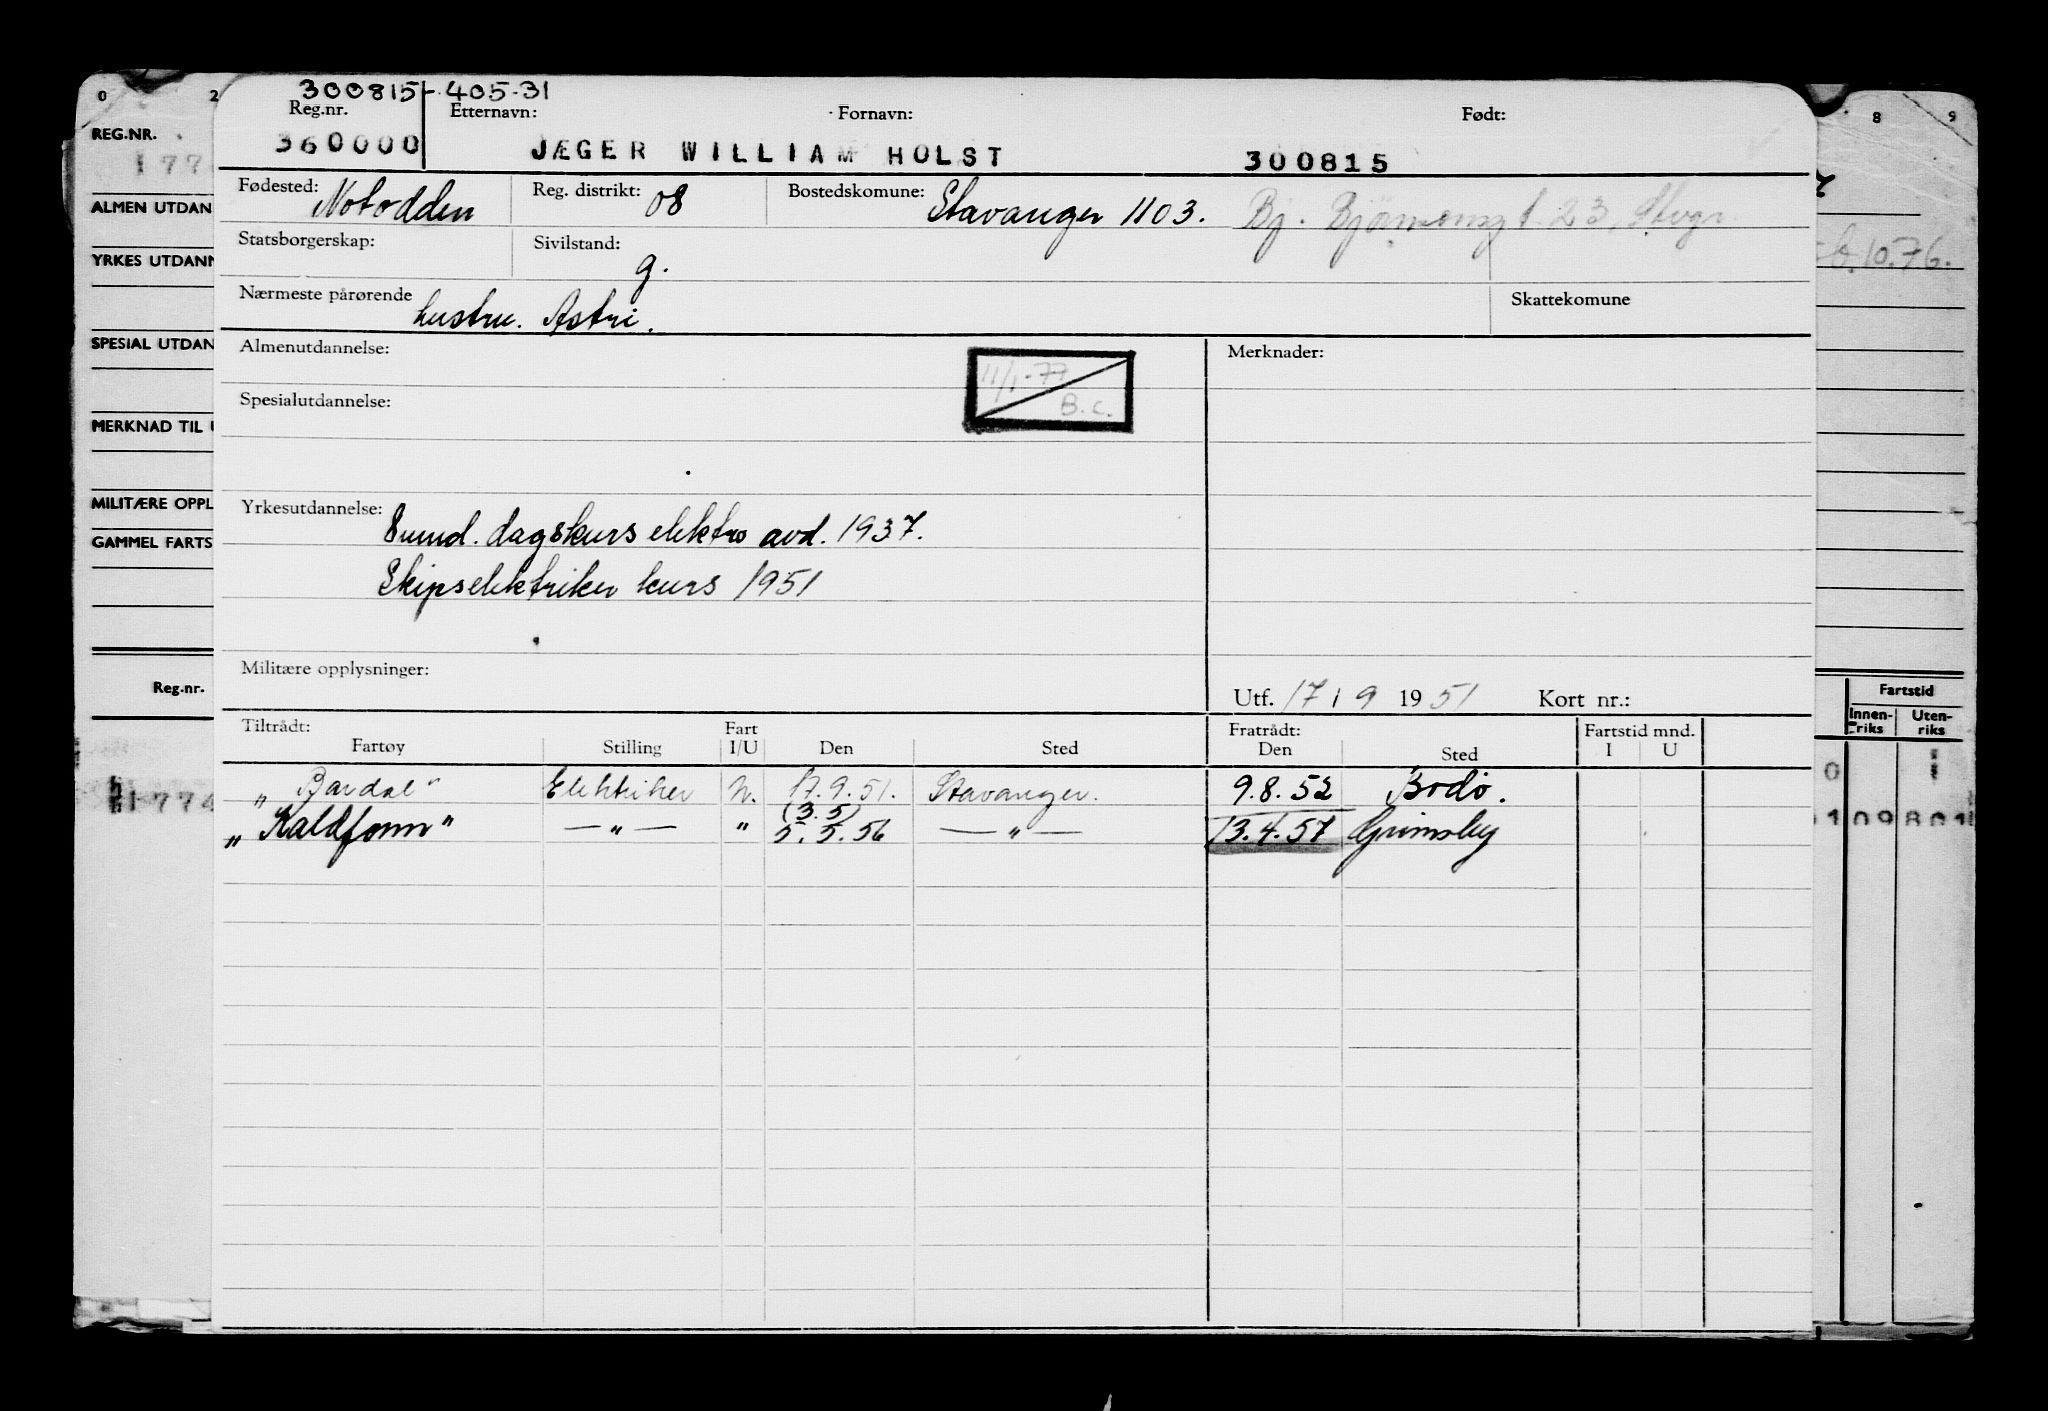 0 2
8 9
REG.NR.
177
ALMEN UTDAN
YRKES UTDANN
10.76.
SPESIAL UTDAN
MERKNAD TIL
MILITÆRE OPPL
GAMMEL FARTS
Reg.nr.
Fartstid
Innen-riks Uten-riks
0 1
1774
1 09 801
300815-405-31
Reg.nr. Etternavn: Fornavn: Født:
360000 JÆGER WILLIAM HOLST 300815
Fødested: Notodden Reg. distrikt: 08 Bostedskomune: Stavanger 1103. Bj. Bjørnsonsgt. 23, Stvgr.
Statsborgerskap: Sivilstand: g.
Nærmeste pårørende hustru. Astri. Skattekomune
Almenutdannelse: Merknader:
11/1-77
B.c.
Spesialutdannelse:
Yrkesutdannelse: Sund. dagskurs elektro avd. 1937.
Skipselektriker kurs 1951
Militære opplysninger:
Utf. 17/9 1951 Kort nr.:
Tiltrådt: Fart Fratrådt: Fartstid mnd.
Fartøy Stilling I/U Den Sted Den Sted I U
„Bardal" Elektriker U. 17.9.51. Stavanger. 9.8.52 Bodø.
(3.5)
„Kaldfonn" —"— " 5.5.56 —"— 13.4.57 Grimsby